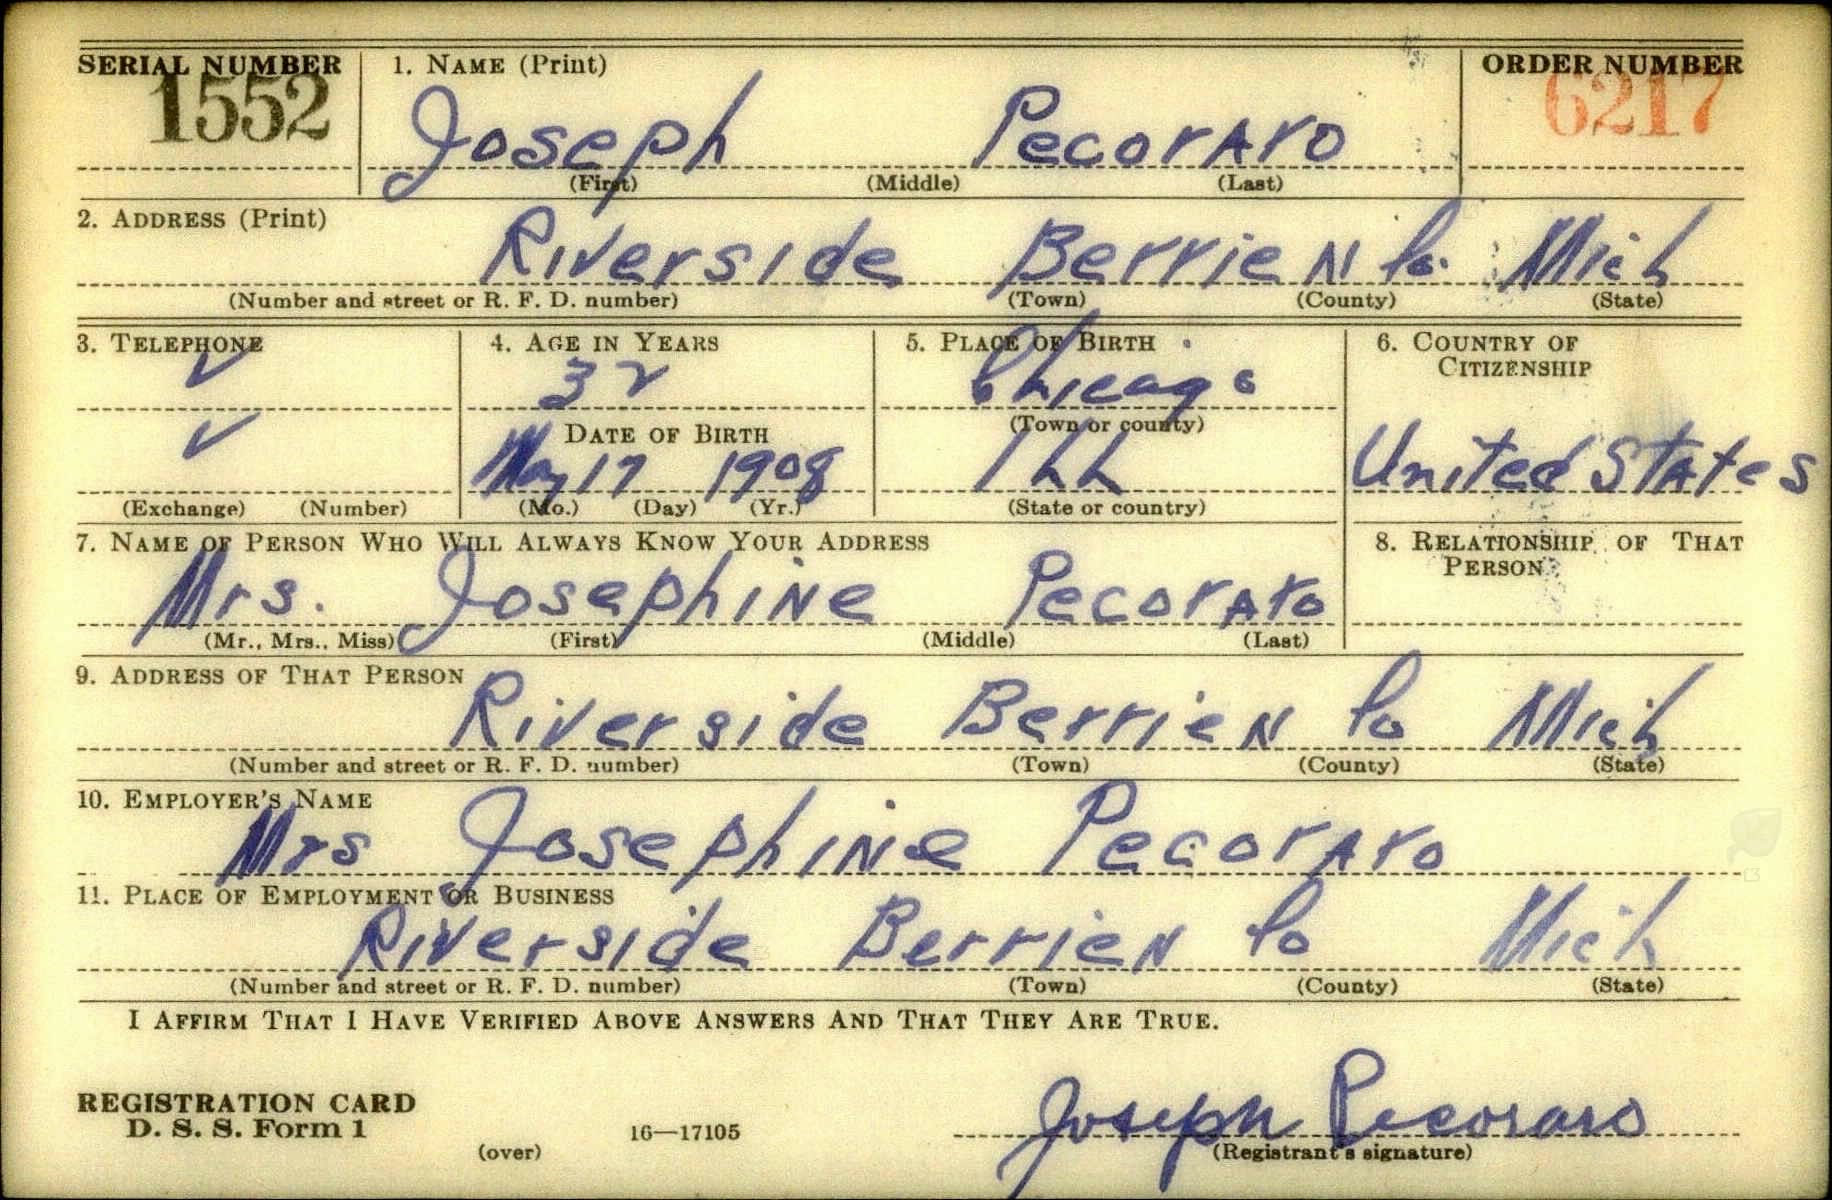 SERIAL NUMBER 1. NAME (Print) ORDER NUMBER
1552 Joseph Pecoraro 6217
(First) (Middle) (Last)
2. ADDRESS (Print)
Riverside Berrien Co. Mich
(Number and street or R. F. D. number) (Town) (County) (State)
3. TELEPHONE 4. AGE IN YEARS 5. PLACE OF BIRTH 6. COUNTRY OF CITIZENSHIP
✓ 32 Chicago
(Town or county)
✓ DATE OF BIRTH
May 17 1908 Ill United States
(Exchange) (Number) (Mo.) (Day) (Yr.) (State or country)
7. NAME OF PERSON WHO WILL ALWAYS KNOW YOUR ADDRESS 8. RELATIONSHIP OF THAT PERSON
Mrs. Josephine Pecoraro
(Mr., Mrs., Miss) (First) (Middle) (Last)
9. ADDRESS OF THAT PERSON
Riverside Berrien Co Mich
(Number and street or R. F. D. number) (Town) (County) (State)
10. EMPLOYER'S NAME
Mrs Josephine Pecoraro
11. PLACE OF EMPLOYMENT OR BUSINESS
Riverside Berrien Co Mich
(Number and street or R. F. D. number) (Town) (County) (State)
I AFFIRM THAT I HAVE VERIFIED ABOVE ANSWERS AND THAT THEY ARE TRUE.
REGISTRATION CARD
D. S. S. Form 1 16—17105 Joseph Pecoraro
(over) (Registrant's signature)